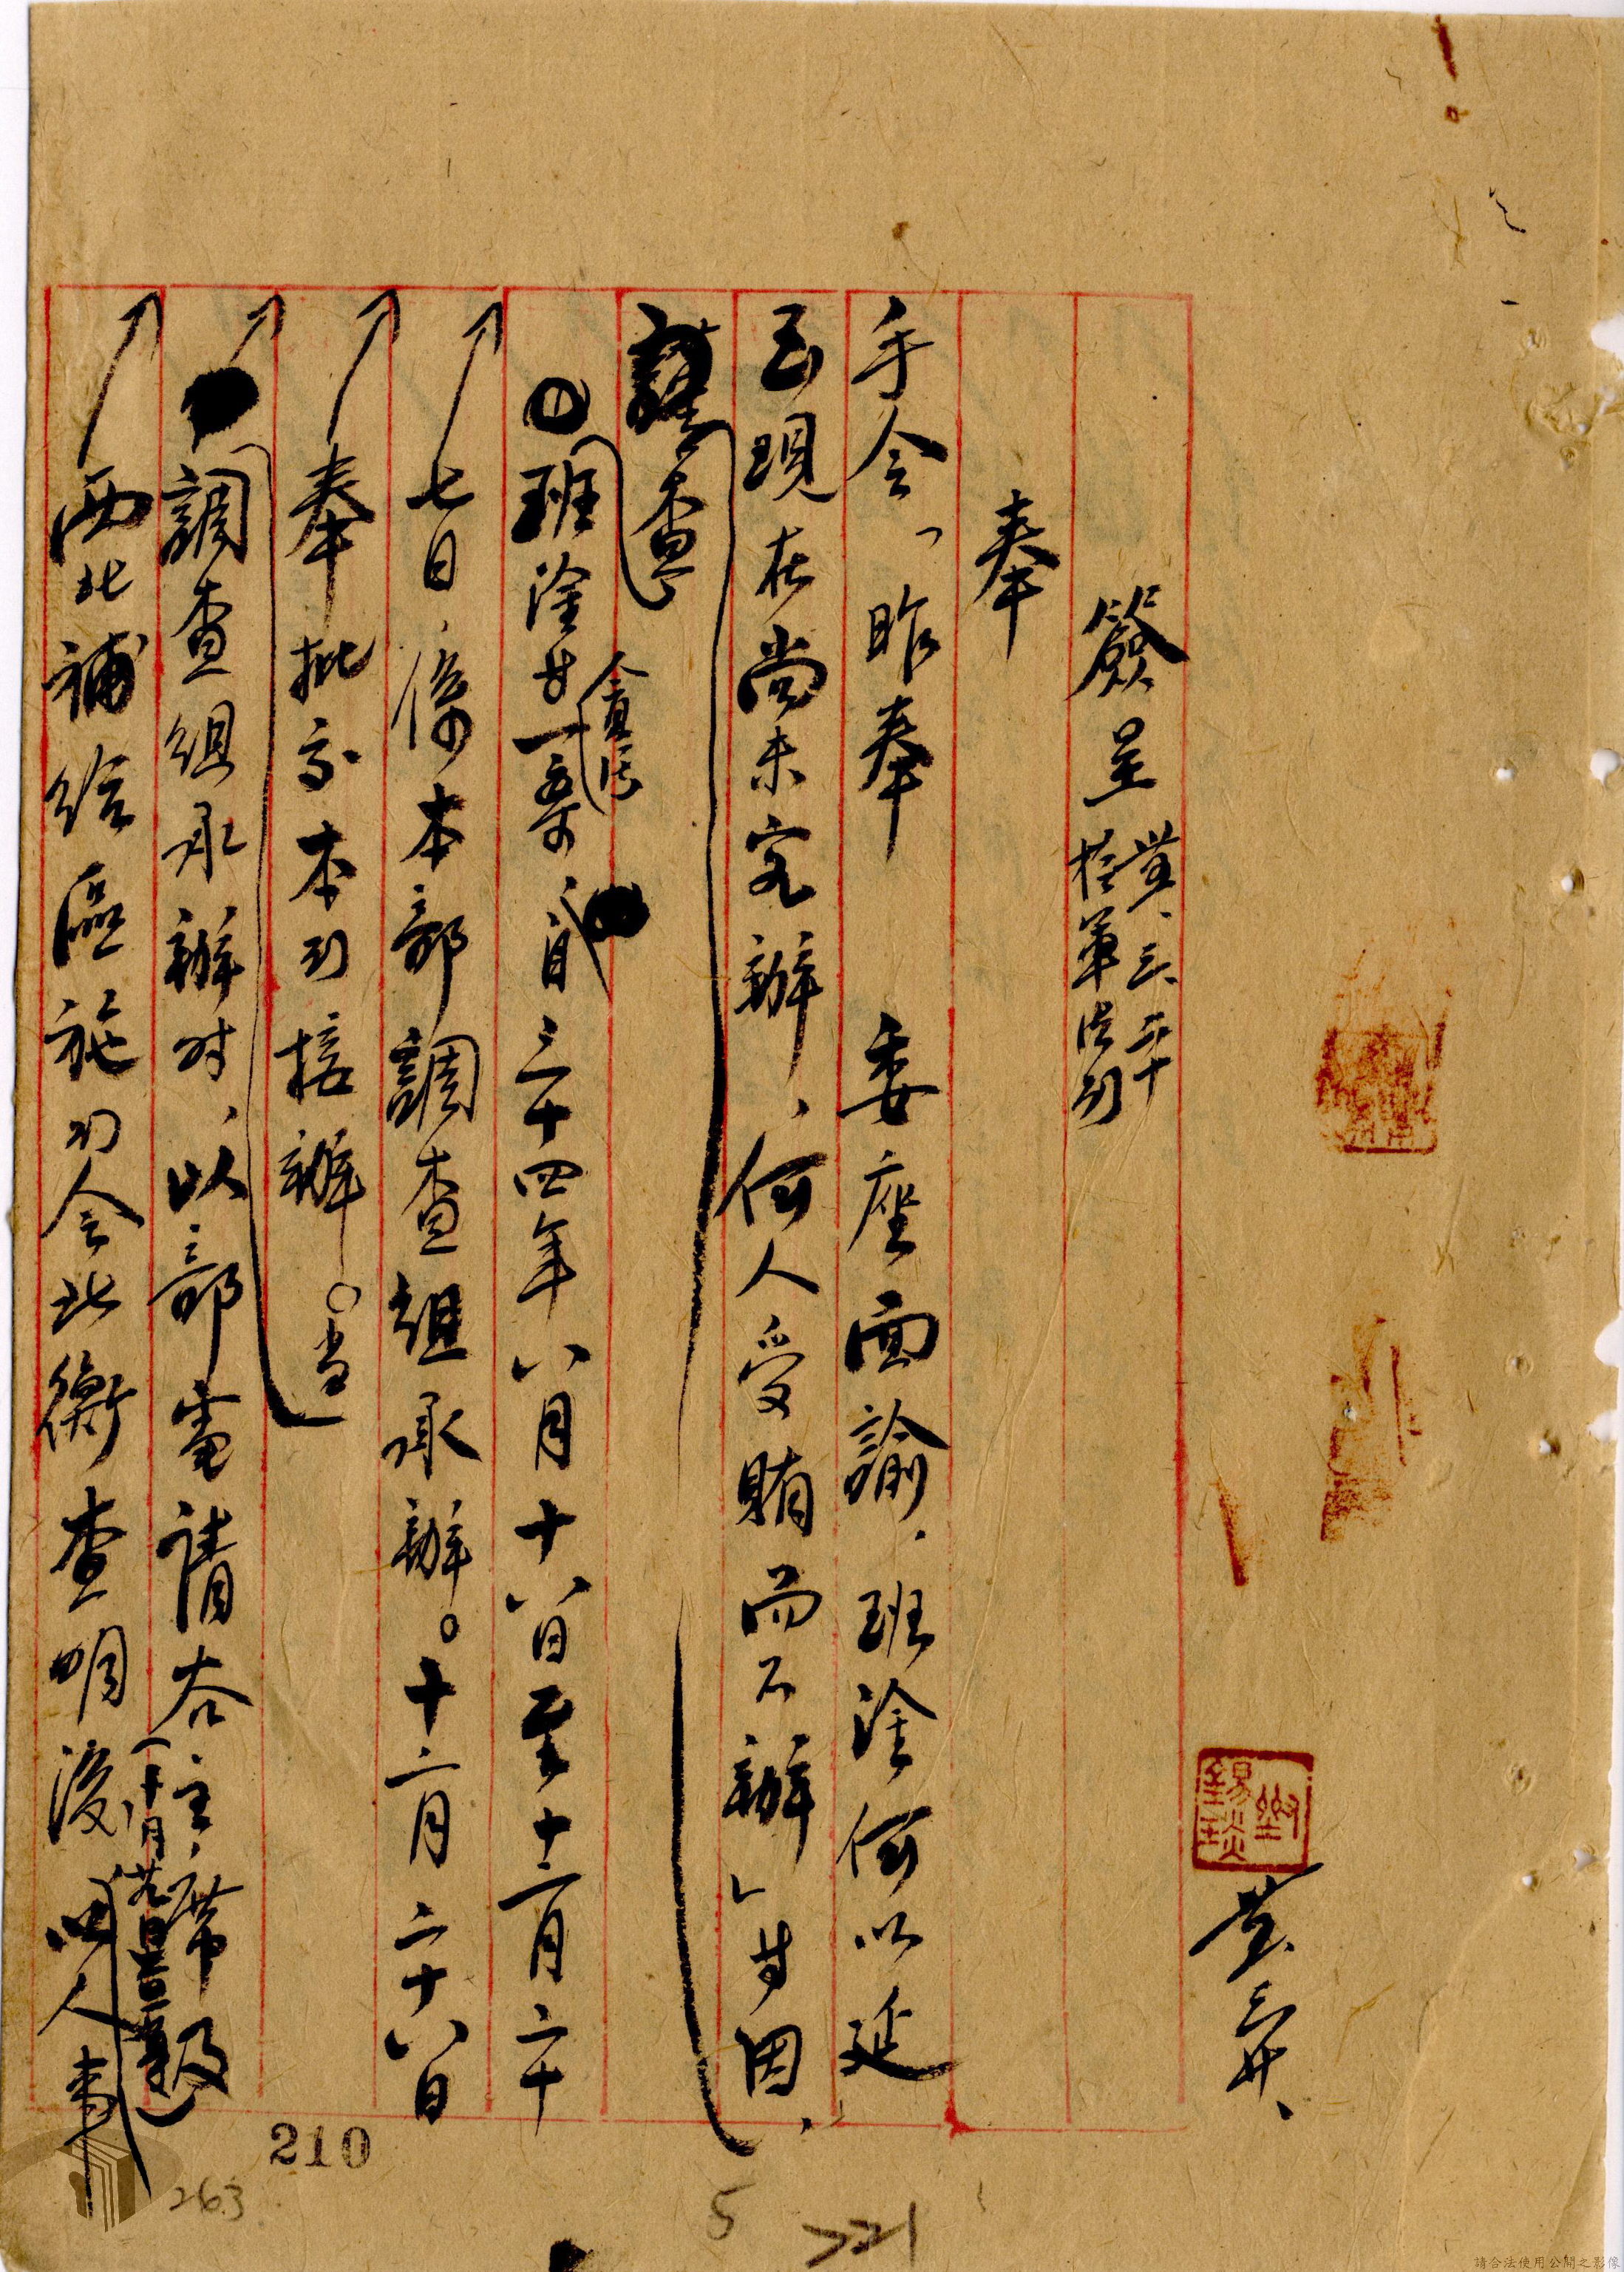 簽呈
卅五、三、二十
於軍法司
奉
手令、「昨奉 委座面諭、班淦何以延
至現在尚未完辦、何人受賄而不辦」等因、
查
①班淦廿一案、自三十四年八月十八日至十二月二十
貪污
七日、係本部調查組承辦。十二月二十八日
奉批交本司接辦。當
調查組承辦時、以部電請谷主席及
西北補給區施司令北衡查明後
210
263
5
請合法使用公開之影像